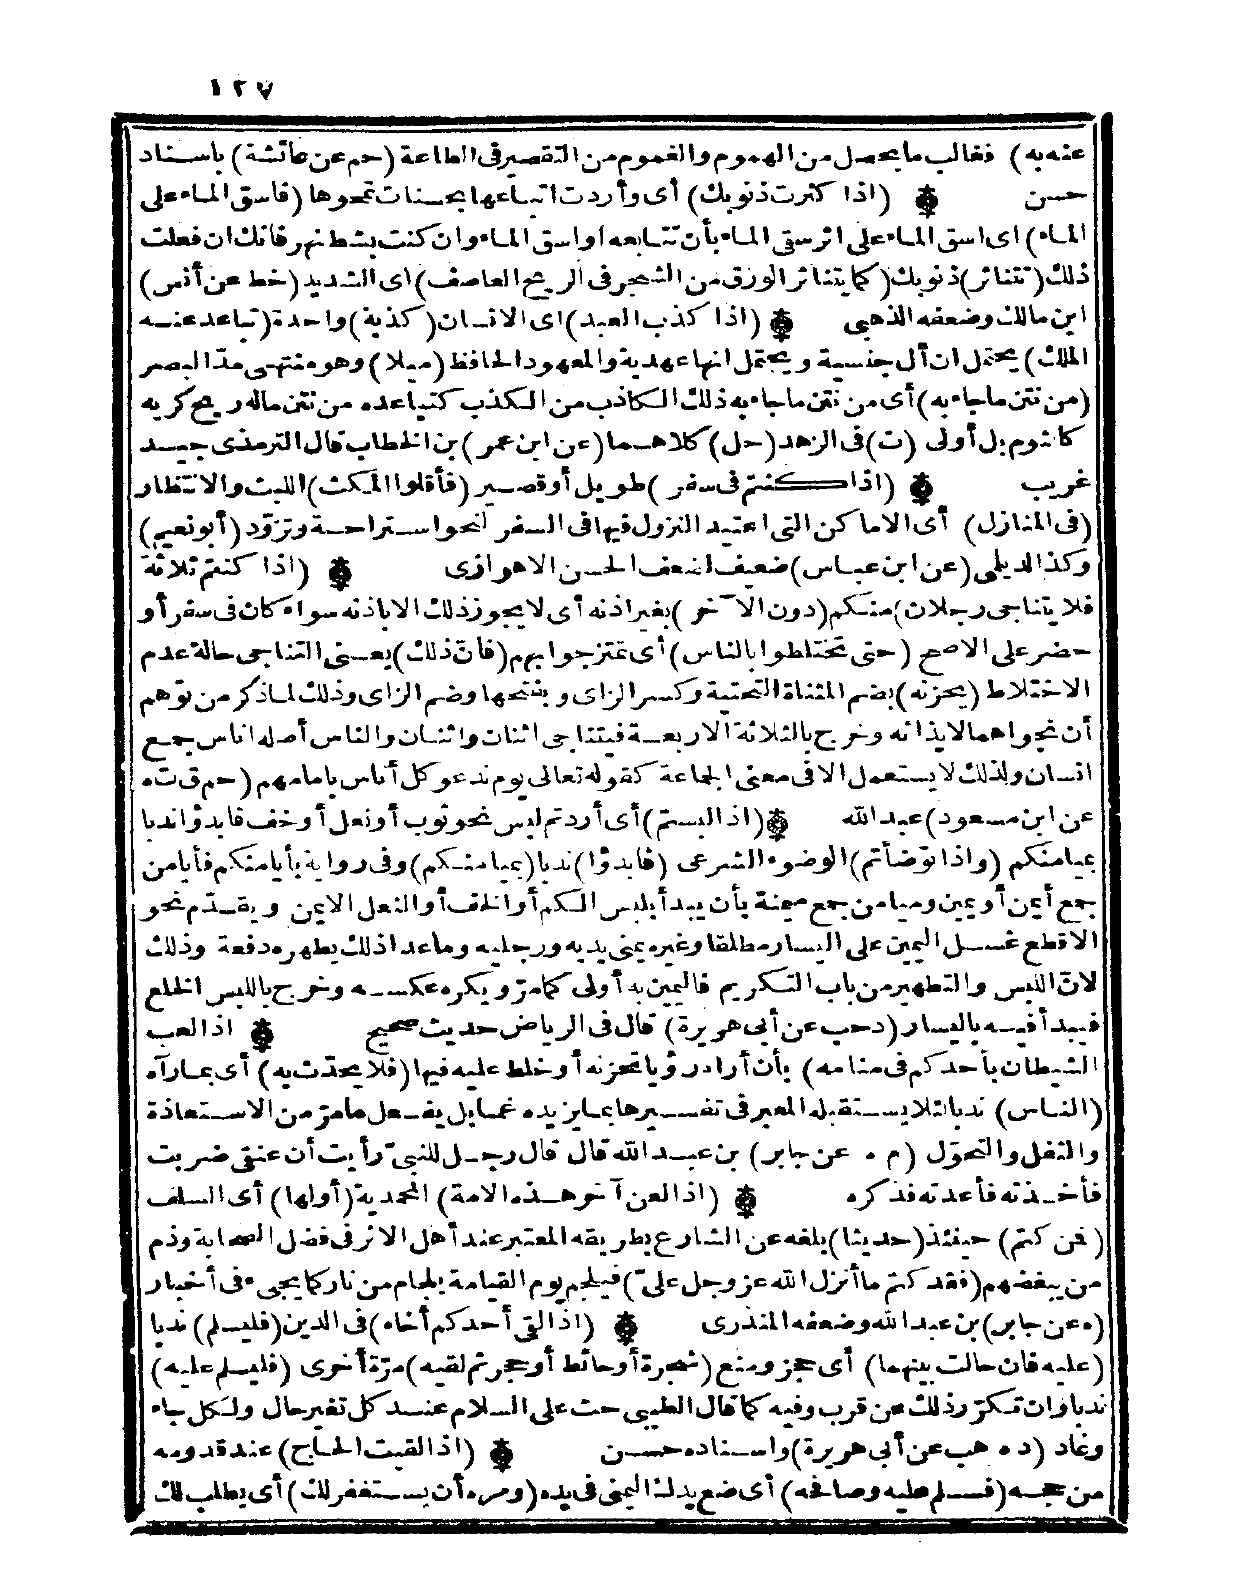 ١٢٧
عنه به) فغالب ما يحصل من الهموم والغموم من التقصير فى الطاعة (حم عن عائشة) باسناد
حسن ۞ (اذا كثرت ذنوبك) أى وأردت اتباعها بحسنات تمحوها (فاسق الماء على
الماء) اى اسق الماء على اثر سقى الماء بأن تتابعه أو اسق الماء وان كنت بشط نهر فانك ان فعلت
ذلك (تتناثر) ذنوبك (كما يتناثر الورق من الشجر فى الريح العاصف) اى الشديد (خط عن أنس)
ابن مالك وضعفه الذهبى ۞ (اذا كذب العبد) اى الانسان (كذبة) واحدة (تباعد عنه
الملك) يحتمل ان أل جنسية ويحتمل انها عهدية والمعهود الحافظ (ميلا) وهو منتهى مدّ البصر
(من نتن ما جاء به) أى من نتن ما جاء به ذلك الكاذب من الكذب كتباعده من نتن ماله ريح كريه
كالثوم بل أولى (ت) فى الزهد (حل) كلاهما (عن ابن عمر) بن الخطاب قال الترمذى جيد
غريب ۞ (اذا كنتم فى سفر) طويل أو قصير (فأقلوا المكث) اللبث والانتظار
(فى المنازل) أى الاماكن التى اعتيد النزول فيها فى السفر لنحو استراحة وتزوّد (أبو نعيم)
وكذا الديلمى (عن ابن عباس) ضعيف لضعف الحسن الاهوازى ۞ (اذا كنتم ثلاثة
فلا يتناجى رجلان) منكم (دون الآخر) بغير اذنه أى لا يجوز ذلك الا باذنه سواء كان فى سفر أو
حضر على الاصح (حتى تختلطوا بالناس) أى تمتزجوا بهم (فانّ ذلك) يعنى التناجى حالة عدم
الاختلاط (يحزنه) بضم المثناة التحتية وكسر الزاى و بفتحها وضم الزاى وذلك لماذكر من توّهم
أن نجواهما لايذائه وخرج بالثلاثة الاربعة فيتناجى اثنان واثنان والناس أصله اناس جمع
انسان ولذلك لا يستعمل الا فى معنى الجماعة كقوله تعالى يوم ندعو كل أناس بامامهم (حم ق ت ه
عن ابن مسعود) عبد الله ۞ (اذ البستم) أى أردتم لبس نحو ثوب أو نعل أو خف فابدؤا ندبا
بميامنكم (واذا توّضأتم) الوضوء الشرعى (فابدؤا) ندبا (بميامنكم) وفى رواية بأيامنكم فأيامن
جمع أيمن أو يمين وميامن جمع ميمنة بأن يبدأ بلبس الكم أو الخف أو النعل الايمن ويقدّم نحو
الاقطع غسل اليمين على اليسار مطلقا وغيره يمنى يديه ورجليه وما عدا ذلك يطهره دفعة وذلك
لانّ اللبس والتطهير من باب التكريم فاليمين به أولى كمامرّ و يكره عكسه وخرج باللبس الخلع
فيبدأ فيه باليسار (د حب عن أبى هريرة) قال فى الرياض حديث صحيح ۞ اذا لعب
الشيطان بأحدكم فى منامه) بأن أراد رؤيا تحزنه أو خلط عليه فيها (فلا يحدّث به) أى بمارآه
(الناس) ندبا لئلا يستقبله المعبر فى تفسيرها بما يزيده غما بل يفعل مامرّ من الاستعاذة
والتفل والتحوّل (م ه عن جابر) بن عبد الله قال قال رجل للنبىّ رأيت أن عنقى ضربت
فأخذته فأعدته فذكره ۞ (اذا لعن آخر هذه الامة) المحمدية (أولها) أى السلف
(فمن كتم) حينئذ (حديثا) بلغه عن الشارع بطريقه المعتبر عند أهل الاثر فى فضل الصحابة وذم
من يبغضهم (فقد كتم ما أنزل الله عز وجل علىّ) فيلجم يوم القيامة بلجام من نار كما يجىء فى أخبار
(ه عن جابر) بن عبد الله وضعفه المنذرى ۞ (اذا لقى أحدكم أخاه) فى الدين (فليسلم) ندبا
(عليه فان حالت بينهما) أى حجز ومنع (شجرة أو حائط أو حجر ثم لقيه) مرّة أخرى (فليسلم عليه)
ندبا وان تكرّر ذلك عن قرب وفيه كما قال الطيبى حث على السلام عند كل تغير حال ولكل جاء
وغاد (د ه هب عن أبى هريرة) واسناده حسن ۞ (اذا لقيت الحاج) عند قدومه
من حجه (فسلم عليه وصافحه) أى ضع يدك اليمنى فى يده (ومره أن يستغفر لك) أى يطلب لك